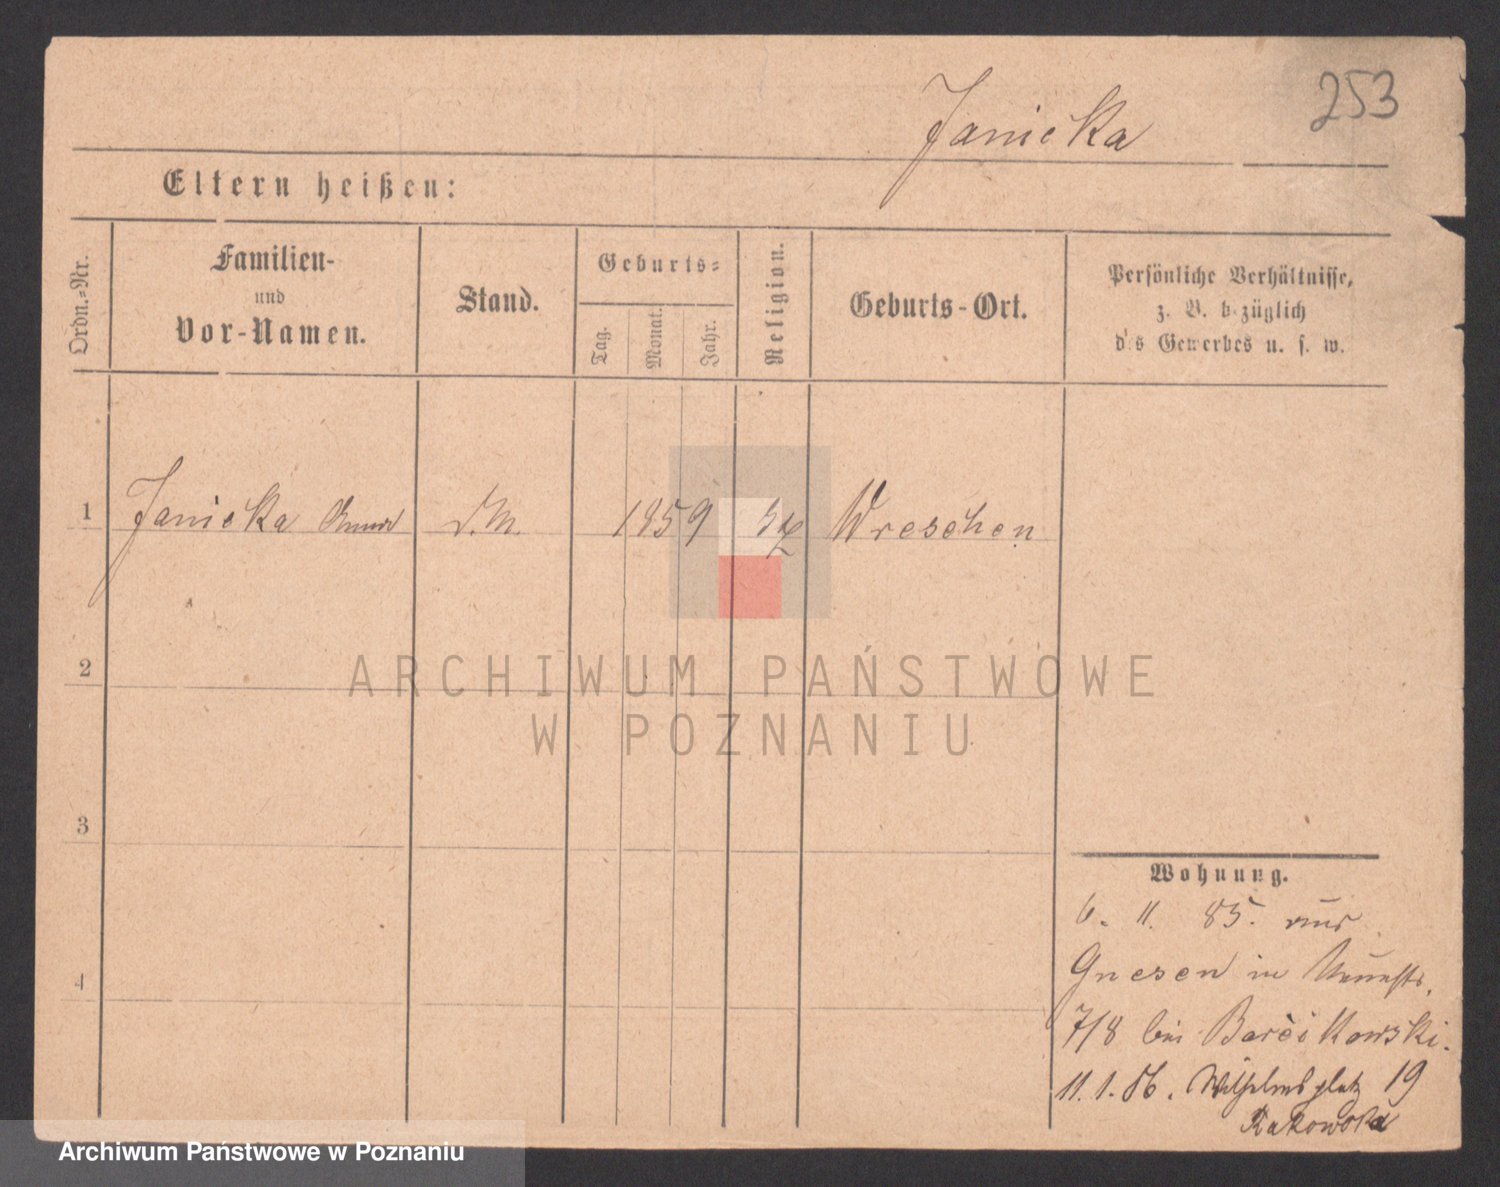 253
Janicka
Eltern heißen:
Ordn.-Nr.
Familien-
und
Vor-Namen.
Stand.
Geburts-
Tag.
Monat.
Jahr.
Religion.
Geburts-Ort.
Persönliche Verhältnisse,
z. B. bezüglich
des Gewerbes u. s. w.
1 Janicka Anna d. M. 1859 Wreschen
2
3
4
ARCHIWUM PAŃSTWOWE
W POZNANIU
Wohnung.
6. 11. 85. aus
Gnesen in
7/8 bei Barcikowski.
11. 1. 86. Wilhelmsplatz 19
Rakowska
Archiwum Państwowe w Poznaniu